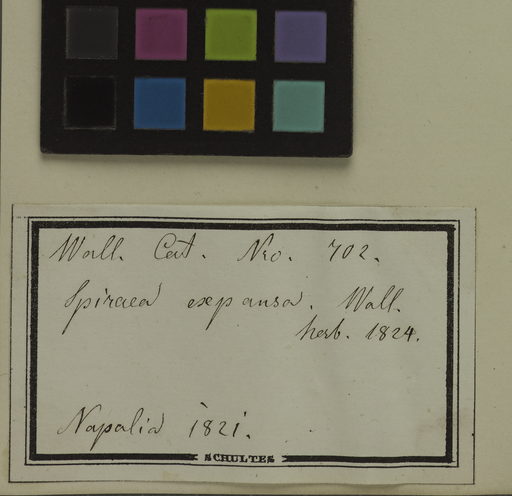 Wall. Cat. Nro. 702.
Spiraea expansa. Wall.
herb. 1824.
Napalia 1821.
SCHULTES